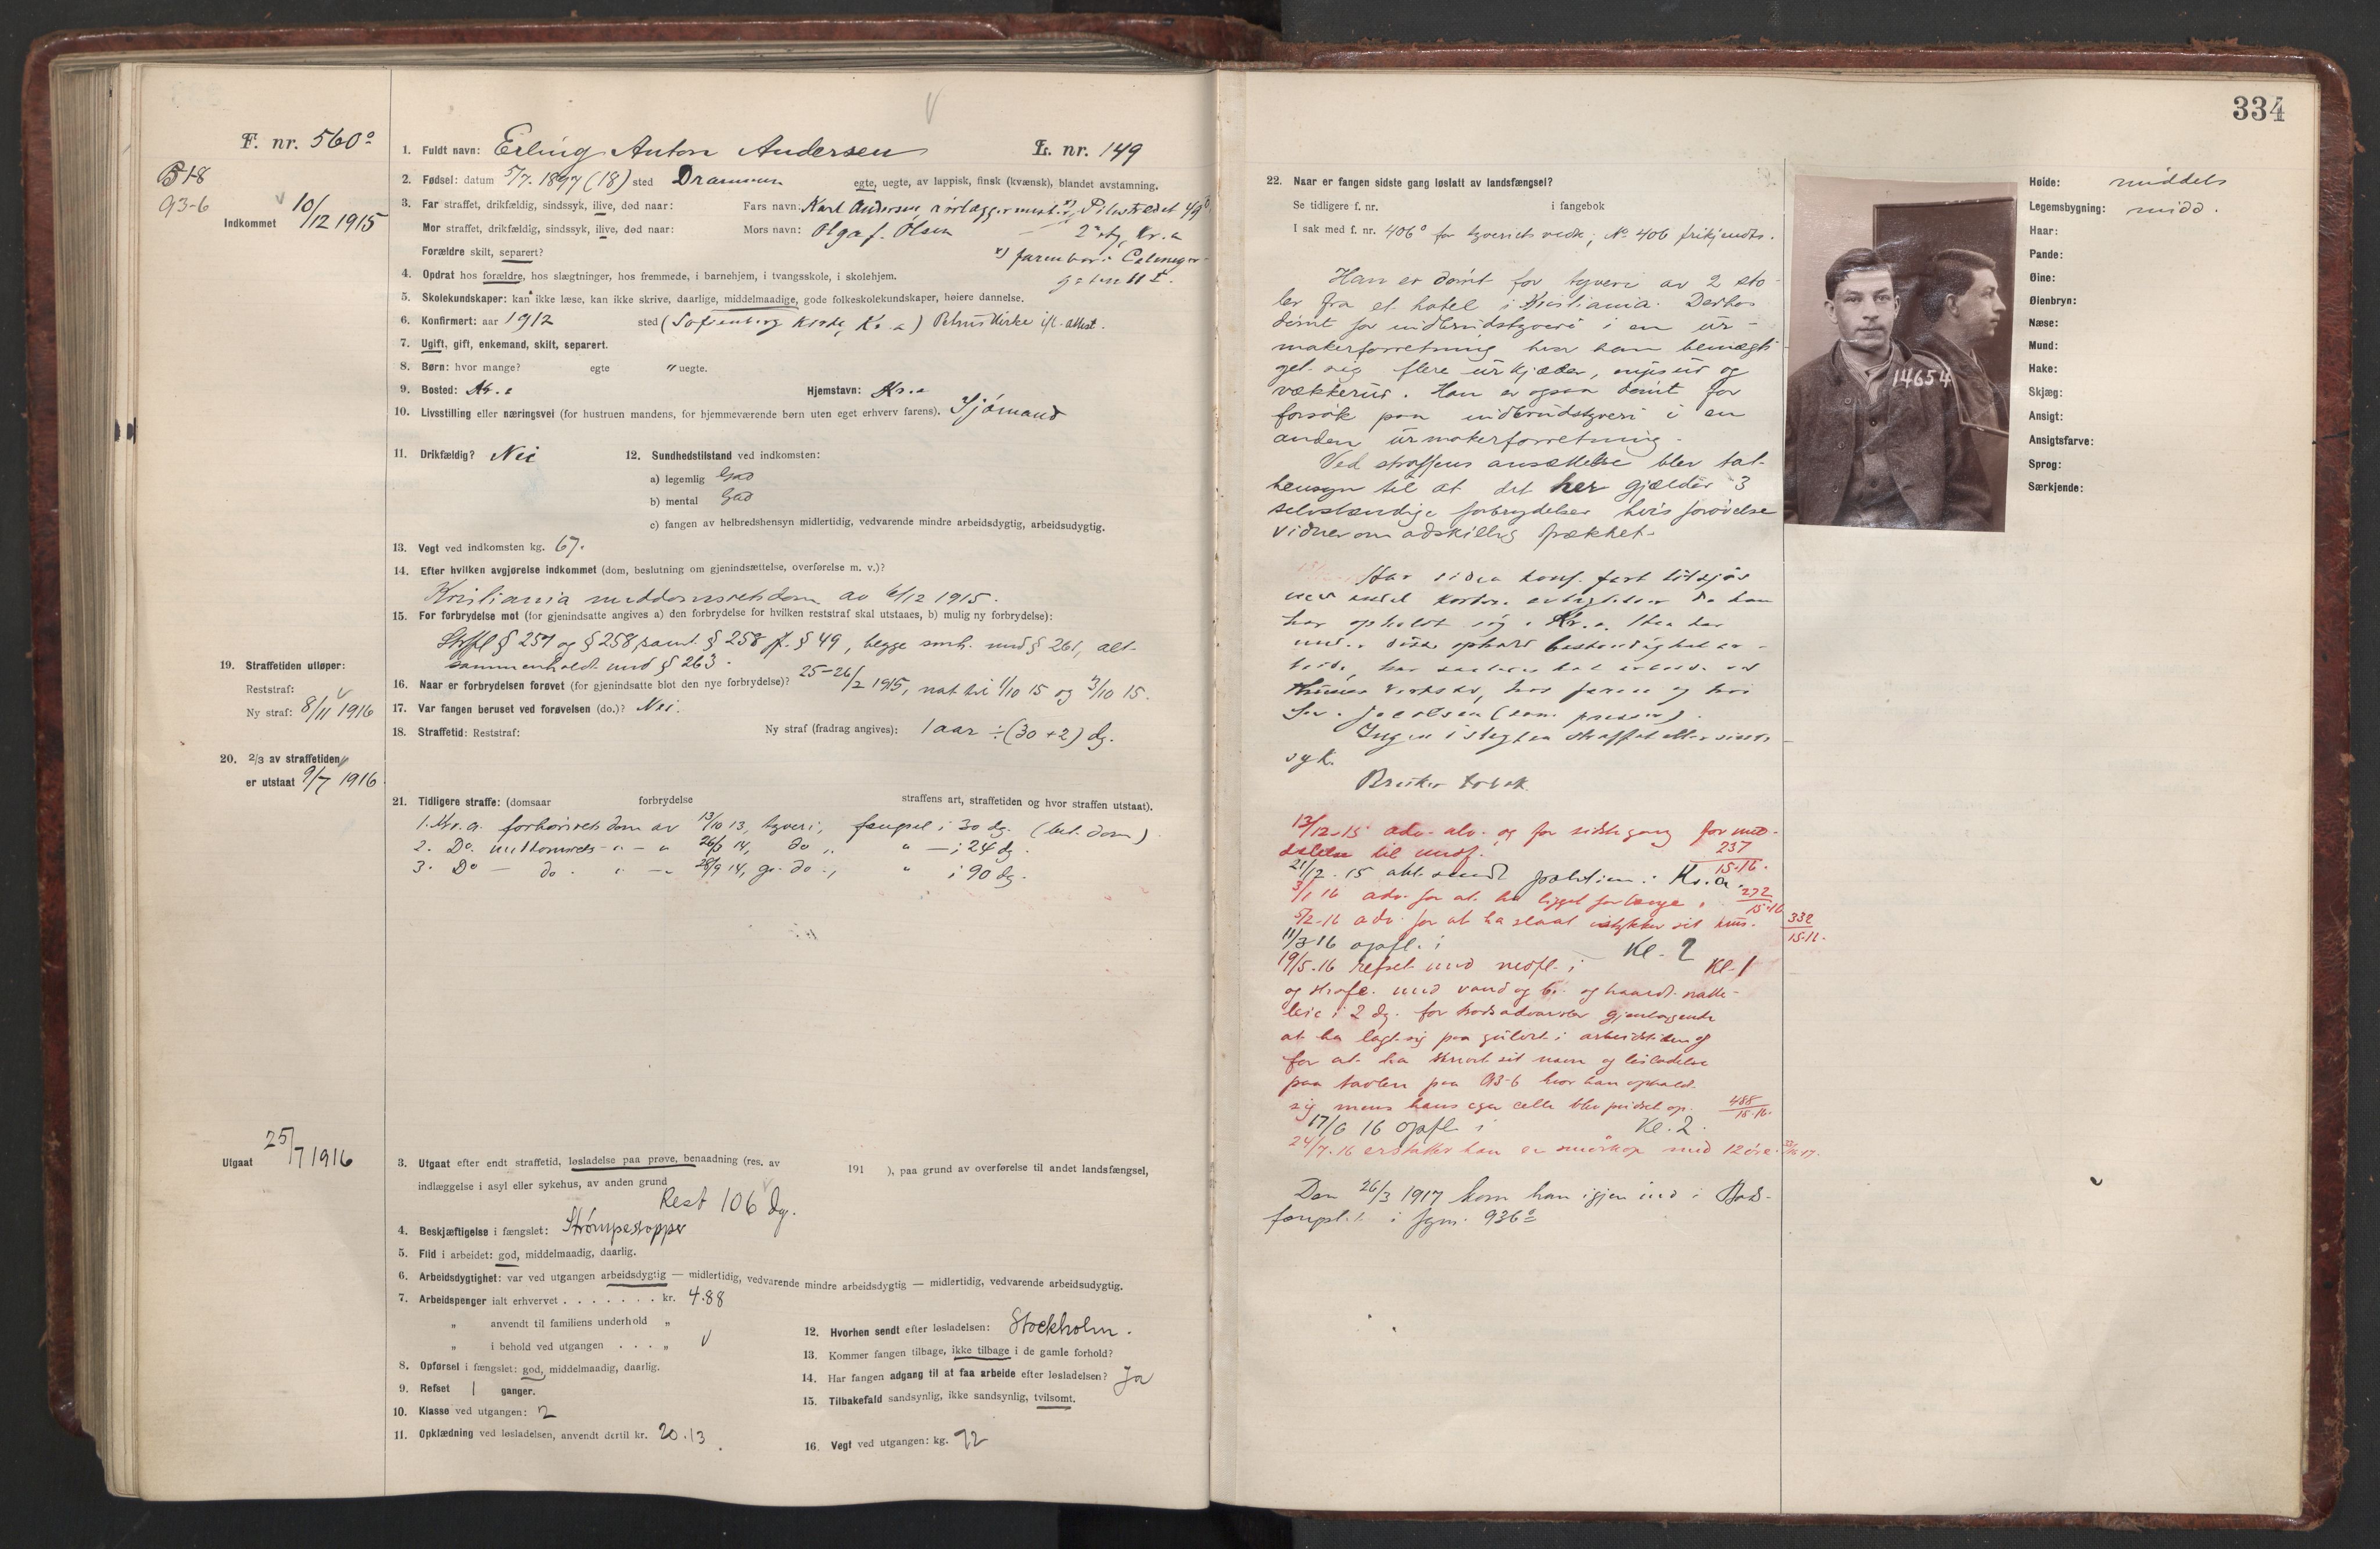 334
F. nr. 560º
B1-8
93-6
Indkommet 10/12 1915
1. Fuldt navn: Erling Anton Andersen L. nr. 149
2. Fødsel: datum 5/7. 1897 (18) sted Drammen egte, uegte, av lappisk, finsk (kvænsk), blandet avstamning.
3. Far straffet, drikfældig, sindssyk, ilive, død naar: Fars navn: Karl Andersen, rørlæggermester, x) Pilestrædet 49
Mor straffet, drikfældig, sindssyk, ilive, død naar: Mors navn: Olga f. Olsen 2 etg, Kr.a
Forældre skilt, separert? x) faren bor i
4. Opdrat hos forældre, hos slægtninger, hos fremmede, i barnehjem, i tvangsskole, i skolehjem. gaten 11 I.
5. Skolekundskaper: kan ikke læse, kan ikke skrive, daarlige, middelmaadige, gode folkeskolekundskaper, høiere dannelse.
6. Konfirmert: aar 1912 sted (Sofienberg Kirke, Kr.a) Petrus Kirke ifl. attest.
7. Ugift, gift, enkemand, skilt, separert.
8. Børn: hvor mange? egte " uegte.
9. Bosted: Kr.a Hjemstavn: Kr.a
10. Livsstilling eller næringsvei (for hustruen mandens, for hjemmeværende børn uten eget erhverv farens). Sjómand
11. Drikfældig? Nei 12. Sundhedstilstand ved indkomsten:
a) legemlig God
b) mental God
c) fangen av helbredshensyn midlertidig, vedvarende mindre arbeidsdygtig, arbeidsudygtig.
13. Vegt ved indkomsten kg. 67.
14. Efter hvilken avgjørelse indkommet (dom, beslutning om gjenindsættelse, overførelse m. v.)?
Kristiania meddomsretsdom av 6/12 1915.
15. For forbrydelse mot (for gjenindsatte angives a) den forbrydelse for hvilken reststraf skal utstaaes, b) mulig ny forbrydelse):
Strfl § 257 og § 258, samt § 258 jf. § 49, begge smh. med § 261, alt
sammenholdt med § 263.
19. Straffetiden utløper:
Reststraf:
Ny straf: 8/11 1916
16. Naar er forbrydelsen forøvet (for gjenindsatte blot den nye forbrydelse)? 25-26/2 1915, nat til 1/10 15 og 3/10 15.
17. Var fangen beruset ved forøvelsen (do.)? Nei.
18. Straffetid: Reststraf: Ny straf (fradrag angives): 1 aar ÷ (30 + 2) dg.
20. 2/3 av straffetiden
er utstaat 9/7 1916
21. Tidligere straffe: (domsaar forbrydelse straffens art, straffetiden og hvor straffen utstaat).
1. Kr.a. forhørsrets dom av 13/10 13, tyveri, fængsel i 30 dg. (bet. dom)
2. Do. meddomsrets - " - " 26/3 14, do " — i 24 dg.
3. Do — do. " — " 28/9 14, gr. do., " i 90 dg.
Utgaat 25/7 1916
3. Utgaat efter endt straffetid, løsladelse paa prøve, benaadning (res. av 191 ), paa grund av overførelse til andet landsfængsel,
indlæggelse i asyl eller sykehus, av anden grund
Rest 106 dg.
4. Beskjæftigelse i fængslet: Strømpestopper
5. Flid i arbeidet: god, middelmaadig, daarlig.
6. Arbeidsdygtighet: var ved utgangen arbeidsdygtig — midlertidig, vedvarende mindre arbeidsdygtig — midlertidig, vedvarende arbeidsudygtig.
7. Arbeidspenger ialt erhvervet . . . . . . . kr. 4.88
„ anvendt til familiens underhold „
„ i behold ved utgangen . . . „
8. Opførsel i fængslet: god, middelmaadig, daarlig.
9. Refset 1 ganger.
10. Klasse ved utgangen: 2
11. Opklædning ved løsladelsen, anvendt dertil kr. 20.13.
12. Hvorhen sendt efter løsladelsen: Stockholm.
13. Kommer fangen tilbage, ikke tilbage i de gamle forhold?
14. Har fangen adgang til at faa arbeide efter løsladelsen? Ja
15. Tilbakefald sandsynlig, ikke sandsynlig, tvilsomt.
16. Vegt ved utgangen: kg. 72
22. Naar er fangen sidste gang løslatt av landsfængsel?
Se tidligere f. nr. i fangebok
I sak med f. nr. 406º for tyveriets vedk; Nº 406 frikjendts.
Han er dømt for tyveri av 2 sto-
ler fra et hotel i Kristiania. Derhos
dømt for indbrudstyveri i en ur-
makerforretning hvor han bemægti
get sig flere urkjæder, og
vækkerur. Han er ogsaa dømt for
forsøk paa indbrudstyveri i en
anden urmakerforretning.
Ved straffens ansættelse blev tat
hensyn til at det her gjælder 3
selvstændige forbrydelser hvis forøvelse
vidner om adskillig frækhet.
Har siden konf. fart tilsjøs
med undt. kortere da han
har opholdt sig i Kr.a. Han har
under disse ophold
har
hos faren og hos
(som presser).
Ingen i slegten straffet eller sinds
syk.
Bruker tobak.
13/12-15 adv. alv. og for sidste gang for med-
delelse til medf. 237/15-16.
21/12-15 akt sendt politiet i Kr.a.
3/1 16 adv. for at ha ligget for længe. 272/15-16
5/2-16 adv. for at ha slaat istykker sit krus. 332/15-16.
11/3-16 opfl. i Kl. 2
19/5.16 refset med nedfl. i Kl. 1
og straffe. med vand og br. og haardt natte-
leie i 2 dg. for trods advarsler gjentagende
at ha lagt sig paa gulvet i arbeidstiden og
for at ha skrevet sit navn og løsladelse
paa tavlen paa 93-6 hvor han opholdt
sig mens hans egen celle blev pudset op. 488/15-16.
17/6 16 opfl i Kl. 2.
24/7.16 erstatter han en med 12 øre.
Den 26/3 1917 kom han igjen ind i Bods-
fængslet i fgnr. 936º
14654
Høide: middels
Legemsbygning: midd.
Haar:
Pande:
Øine:
Øienbryn:
Næse:
Mund:
Hake:
Skjæg:
Ansigt:
Ansigtsfarve:
Sprog:
Særkjende: